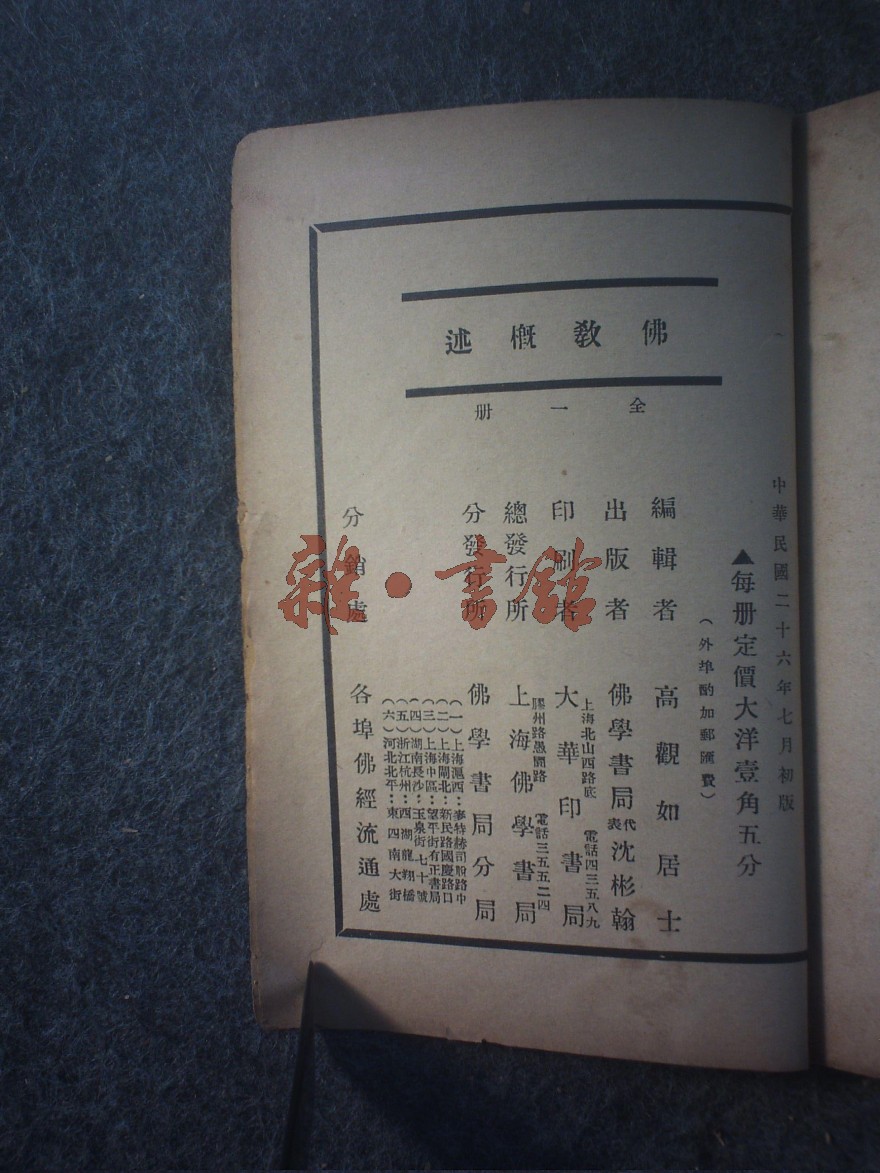 中華民國二十六年七月初版
▲每册定價大洋壹角五分
（外埠酌加郵匯費）
佛教概述
全一册
編輯者 高觀如居士
出版者 佛學書局代表沈彬翰
上海北山西路底 電話四三五八九
印刷者 大華印書局
膠州路愚園路 電話三五五二四
總發行所 上海佛學書局
分發行所 佛學書局分局
（一）上海滬西：麥特赫司脫路中
（二）上海閘北：新民路國慶路口
（三）上海中區：望平街有正書局
（四）湖南長沙：玉泉街七十號
（五）浙江杭州：西湖龍翔橋
（六）河北北平：東四南大街
分銷處 各埠佛經流通處
雜·書館